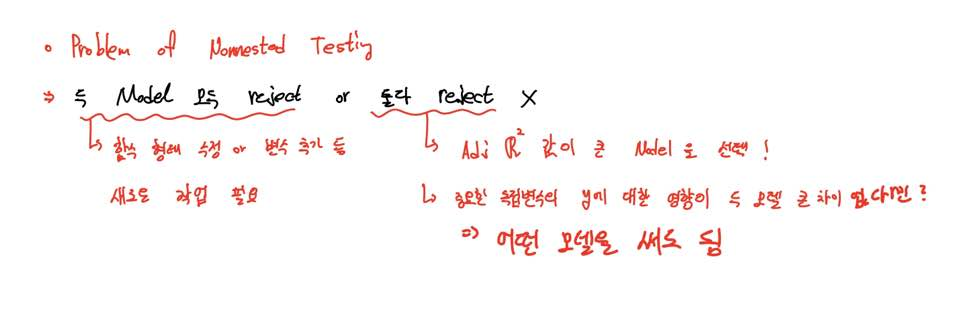 o Problem of Nonnested Testing
⇒ 두 Model 모두 reject or 둘다 reject X
↳ 함수 형태 수정 or 변수 추가 등
새로운 작업 필요
↳ Adj R² 값이 큰 Model 로 선택!
↳ 중요한 독립변수의 y에 대한 영향이 두 모델 큰 차이 없다면?
⇒ 어떤 모델을 써도 됨